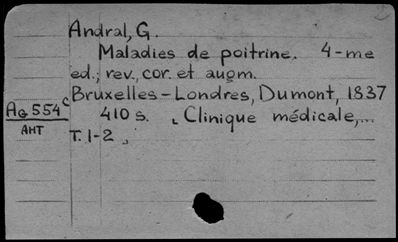 Andral, G.
Maladies de poitrine. 4-me
ed., rev., cor. et augm.
Bruxelles-Londres, Dumont, 1837
410 s. „Clinique médicale,...
T. 1-2„
Ag 554c
АНТ